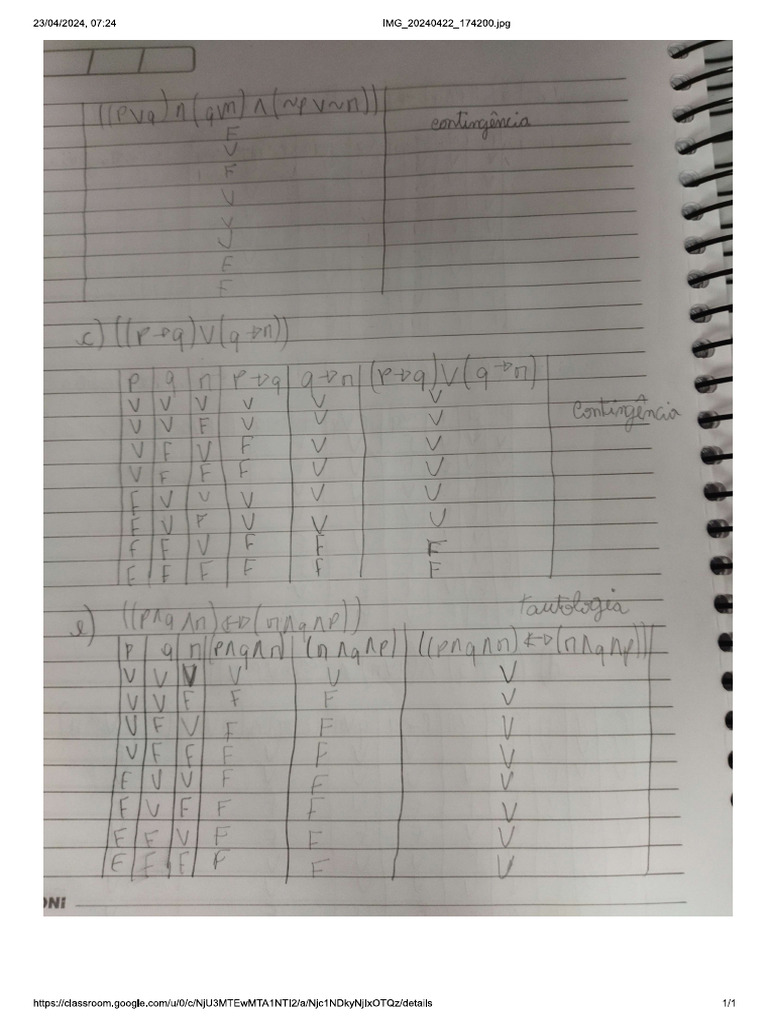 23/04/2024, 07:24 IMG_20240422_174200.jpg
((p∨q) ∧ (q∨r) ∧ (~p∨~r))
contingência
F
V
F
V
V
V
F
F
c) ((p→q)∨(q→r))
p q r p→q q→r (p→q)∨(q→r)
V V V V V V
Contingência
V V F V V V
V F V F V V
V F F F V V
F V V V V V
F V F V V V
F F V F F F
F F F F F F
tautologia
e) ((p∧q∧r)↔(r∧q∧p))
p q r (p∧q∧r) (r∧q∧p) ((p∧q∧r)↔(r∧q∧p))
V V V V V V
V V F F F V
V F V F F V
V F F F F V
F V V F F V
F V F F F V
F F V F F V
F F F F F V
ONi
https://classroom.google.com/u/0/c/NjU3MTEwMTA1NTI2/a/Njc1NDkyNjIxOTQz/details 1/1